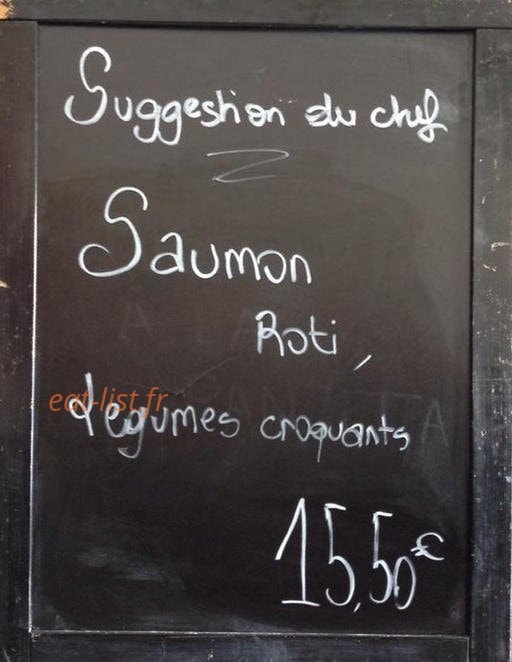 Suggestion du chef
Saumon
Roti,
eat-list.fr
Légumes croquants
15,50€